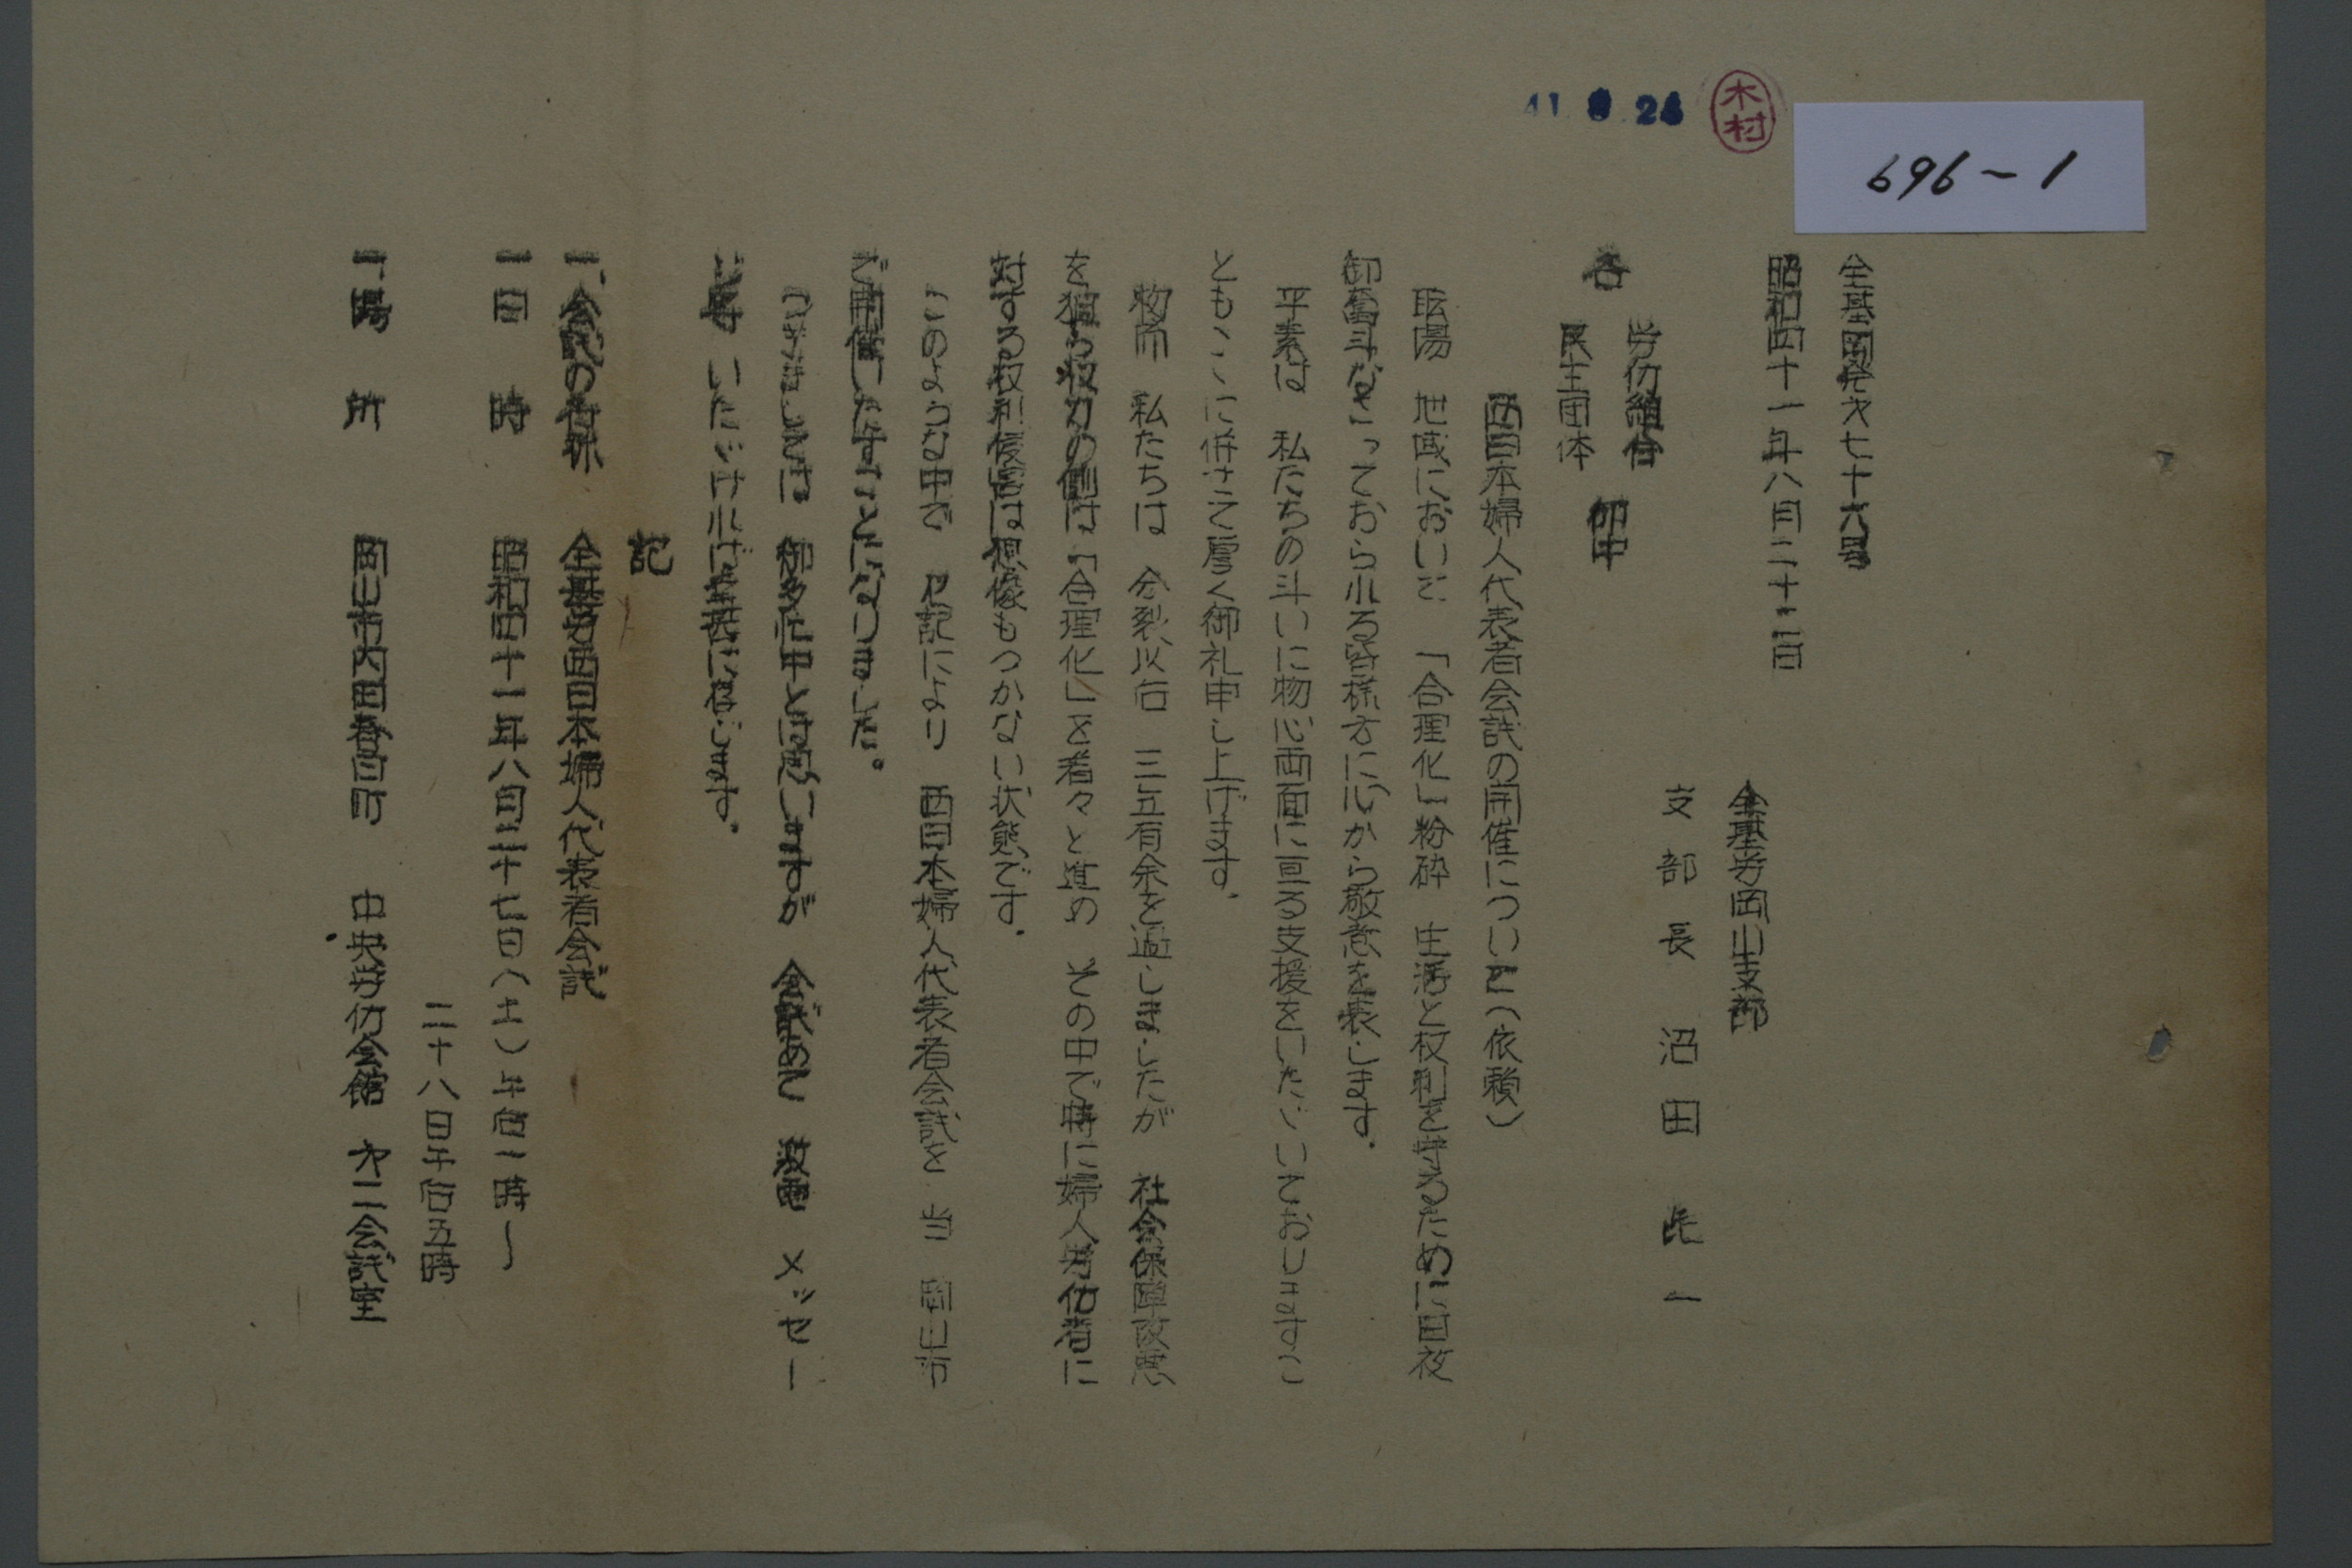 696~1
木村
41 8 26
全基岡発才七十六号
昭和四十一年八月二十二日
全基労岡山支部
支部長 沼田 一
各 労仂組合 民主団体 御中
西日本婦人代表者会議の開催について(依頼)
职場 地域において 「合理化」粉砕 生活と权利を守るために日夜
御奮斗なさっておられる皆様方に心から敬意を表します.
平素は 私たちの斗いに物心両面に亘る支援をいただいておりますこ
ともここに併せて厚く御礼申し上げます.
扨而 私たちは 分裂以后 三年有余を過しましたが 社会保障改悪
を狙う权力の側は「合理化」を着々と進め その中で特に婦人労仂者に
対する权利侵害は想像もつかない状態です.
このような中で 下記により 西日本婦人代表者会議を 当 岡山市
で開催いたすことになりました。
つきましては 御多忙中とは思いますが 会議あて 激電 メッセー
ジ等 いただければ幸甚に存じます.
記
一、会議の名称 全基労西日本婦人代表者会議
一 日 時 昭和四十一年八月二十七日(土)午后一時~
二十八日午后五時
一、場 所 岡山市内田春日町 中央労仂会館 才二会議室